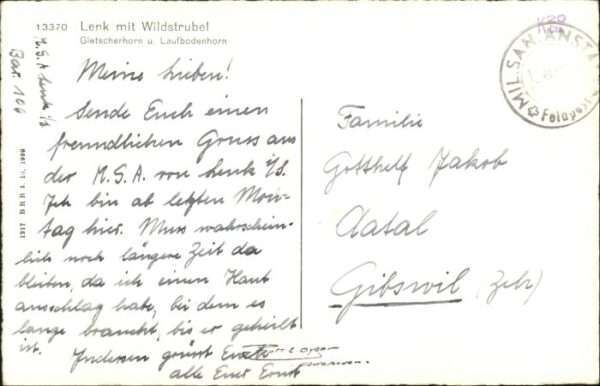 13370 Lenk mit Wildstrubel
Gletscherhorn u. Laufbodenhorn
M.S.A Lenk i/S
Bar. 100
1917 B R B 3. 10. 1939
Meine Lieben!
Sende Euch einen
freundlichen Gruss aus
der M.S.A. von Lenk i/S.
Ich bin ab letzten Mon-
tag hier. Muss wahrschein-
lich noch längere Zeit da
bleiben, da ich einen Haut
ausschlag habe, bei dem es
lange braucht, bis er geheilt
ist. Indessen grüsst Euch
alle Euer Ernst
MIL. SAN. ANSTA
Feldpost
Familie
Gotthelf Jakob
Aatal
Gibswil (Zch)